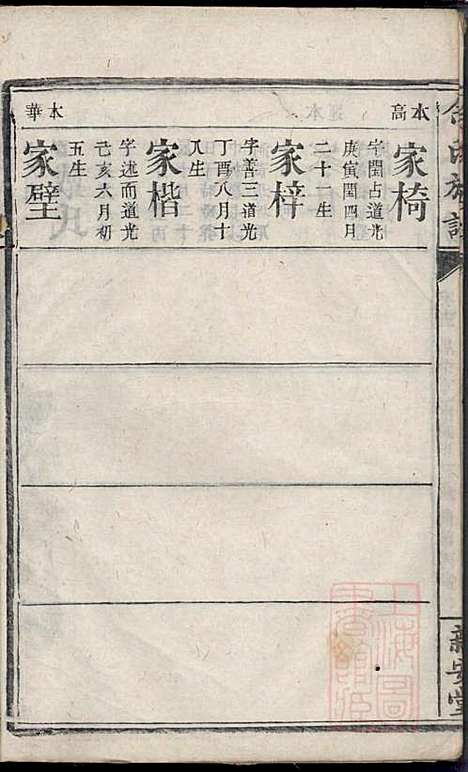 本高
家椅
字閩占道光
庚寅閏四月
二十一生
家梓
字善三道光
丁酉八月十
八生
家楷
字述而道光
己亥六月初
五生
本華
家壁
氏族譜
新安堂
上海圖書館藏